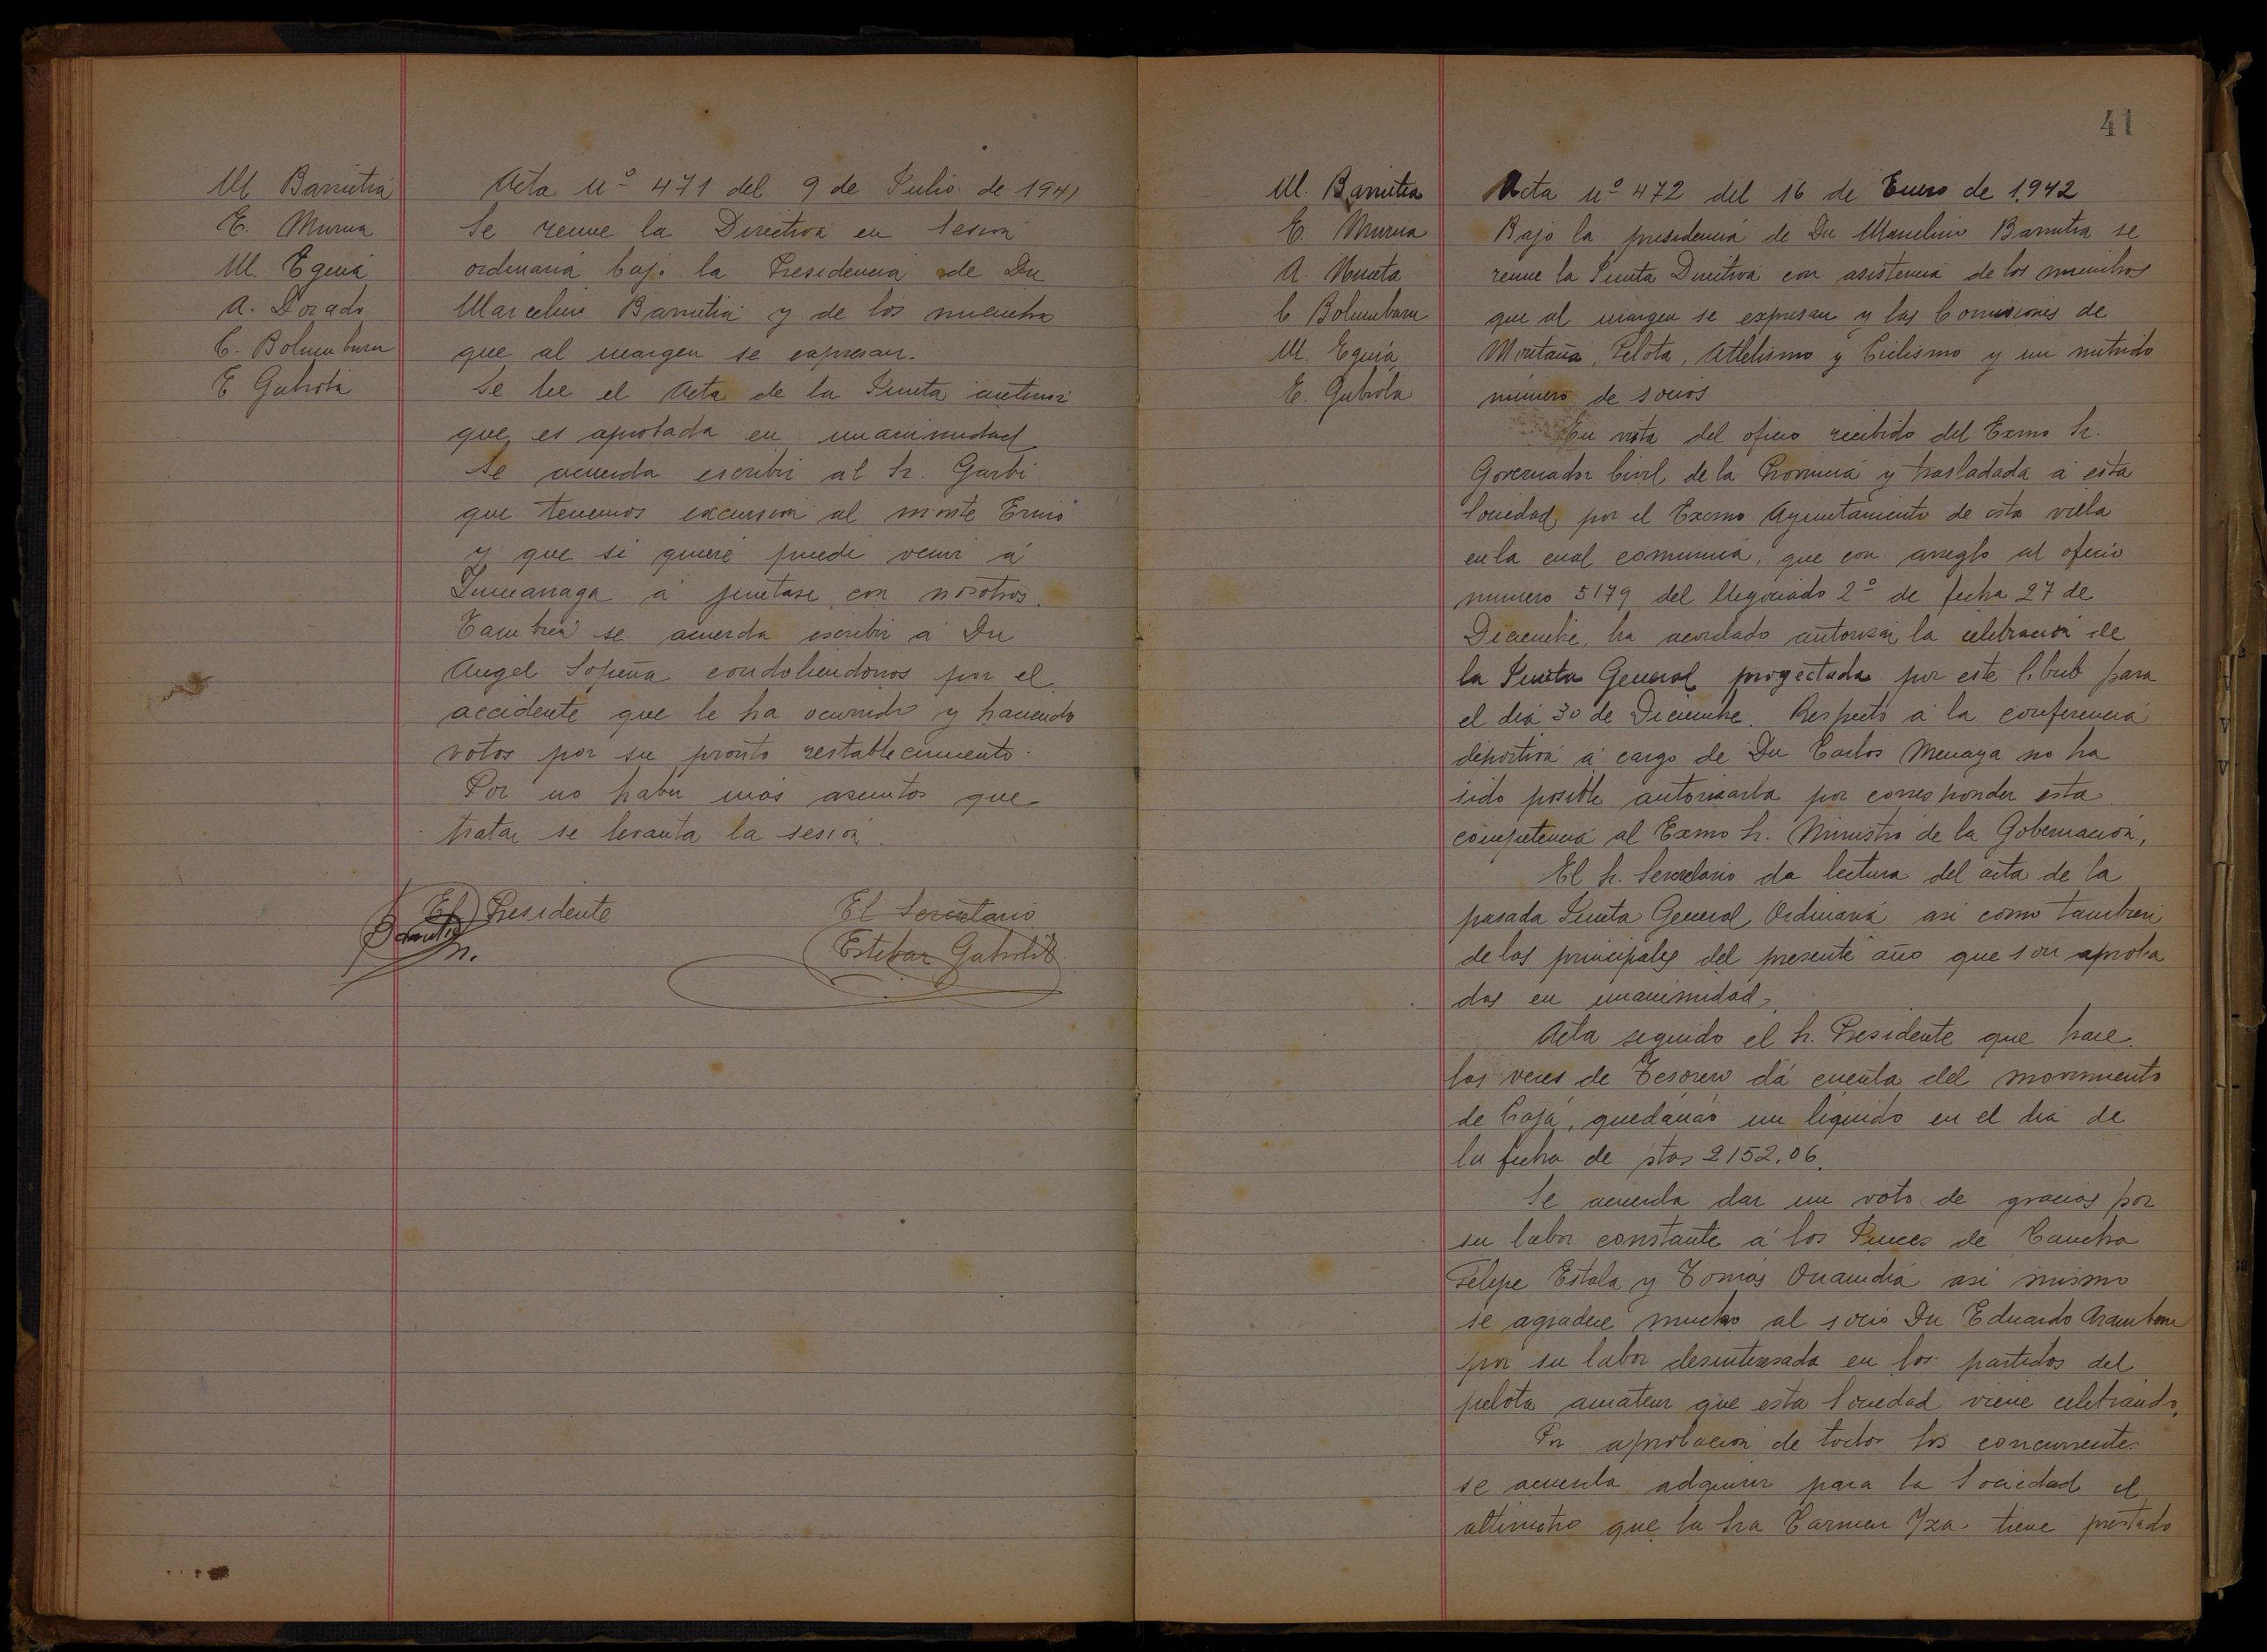 M Barrutia
E. Murua
M. Eguia
A. Dorado
C. Bolumburu
E Gabiola
Acta nº 471 del 9 de Julio de 1941
Se reune la Directiva en Sesion
ordinaria bajo la Presidencia de Dn
Marcelino Barrutia y de los miembros
que al margen se expresan.
Se lee el Acta de la Junta anterior
que es aprobada en unanimidad
Se acuerda escribir al Sr. Garbi
que tenemos excursion al monte Ernio
y que si quiere puede venir á
Zumarraga á juntase con nosotros.
Tambien se acuerda escribir á Dn
Angel Sopeña condoliendonos por el
accidente que le ha ocurrido y haciendo
votos por su pronto restablecimiento.
Por no haber más asuntos que
tratar se levanta la sesion.
El Presidente
Barrutia
M.
El Secretario
Esteban Gabiola
41
M. Barrutia
E. Murua
A. Unceta
C Bolumburu
M. Eguia
E. Gabiola
Acta nº 472 del 16 de Enero de 1.942
Bajo la presidencia de Dn Marcelino Barrutia se
reune la Junta Directiva con asistencia de los miembros
que al margen se expresan y las Comisiones de
Montaña, Pelota, Atletismo y Ciclismo y un nutrido
número de socios
En vista del oficio recibido del Exmo Sr.
Governador Civil de la Provincia y trasladada á esta
Sociedad por el Excmo Ayuntamiento de esta villa
en la cual comunica, que con arreglo al oficio
numero 5179 del Negociado 2º de fecha 27 de
Diciembre, ha acordado autorizar la celebracion de
la Junta General proyectada por este Club para
el dia 30 de Diciembre. Respecto á la conferencia
deportiva á cargo de Dn Carlos Menaya no ha
sido posible autorizarla por corresponder esta
competencia al Exmo Sr. Ministro de la Gobernacion,
El Sr. Secretario da lectura del acta de la
pasada Junta General Ordinaria asi como tambien
de las principales del presente año que son aproba
das en unanimidad.
Acta seguido el Sr. Presidente que hace
las veces de Tesorero dá cuenta del movimiento
de Caja, quedando un liquido en el dia de
la fecha de ptas 2152,06.
Se acuerda dar un voto de gracias por
su labor constante á los Jueces de Cancha
Felipe Estala y Tomás Onaindia asi mismo
se agradece mucho al socio Dn Eduardo Aramburu
por su labor desinteresada en los partidos del
pelota amateur que esta Sociedad viene celebrando.
Por aprobacion de todos los concurrentes
se acuerda adquirir para la Sociedad el
altimetro que la Sra Carmen Yza tiene prestado